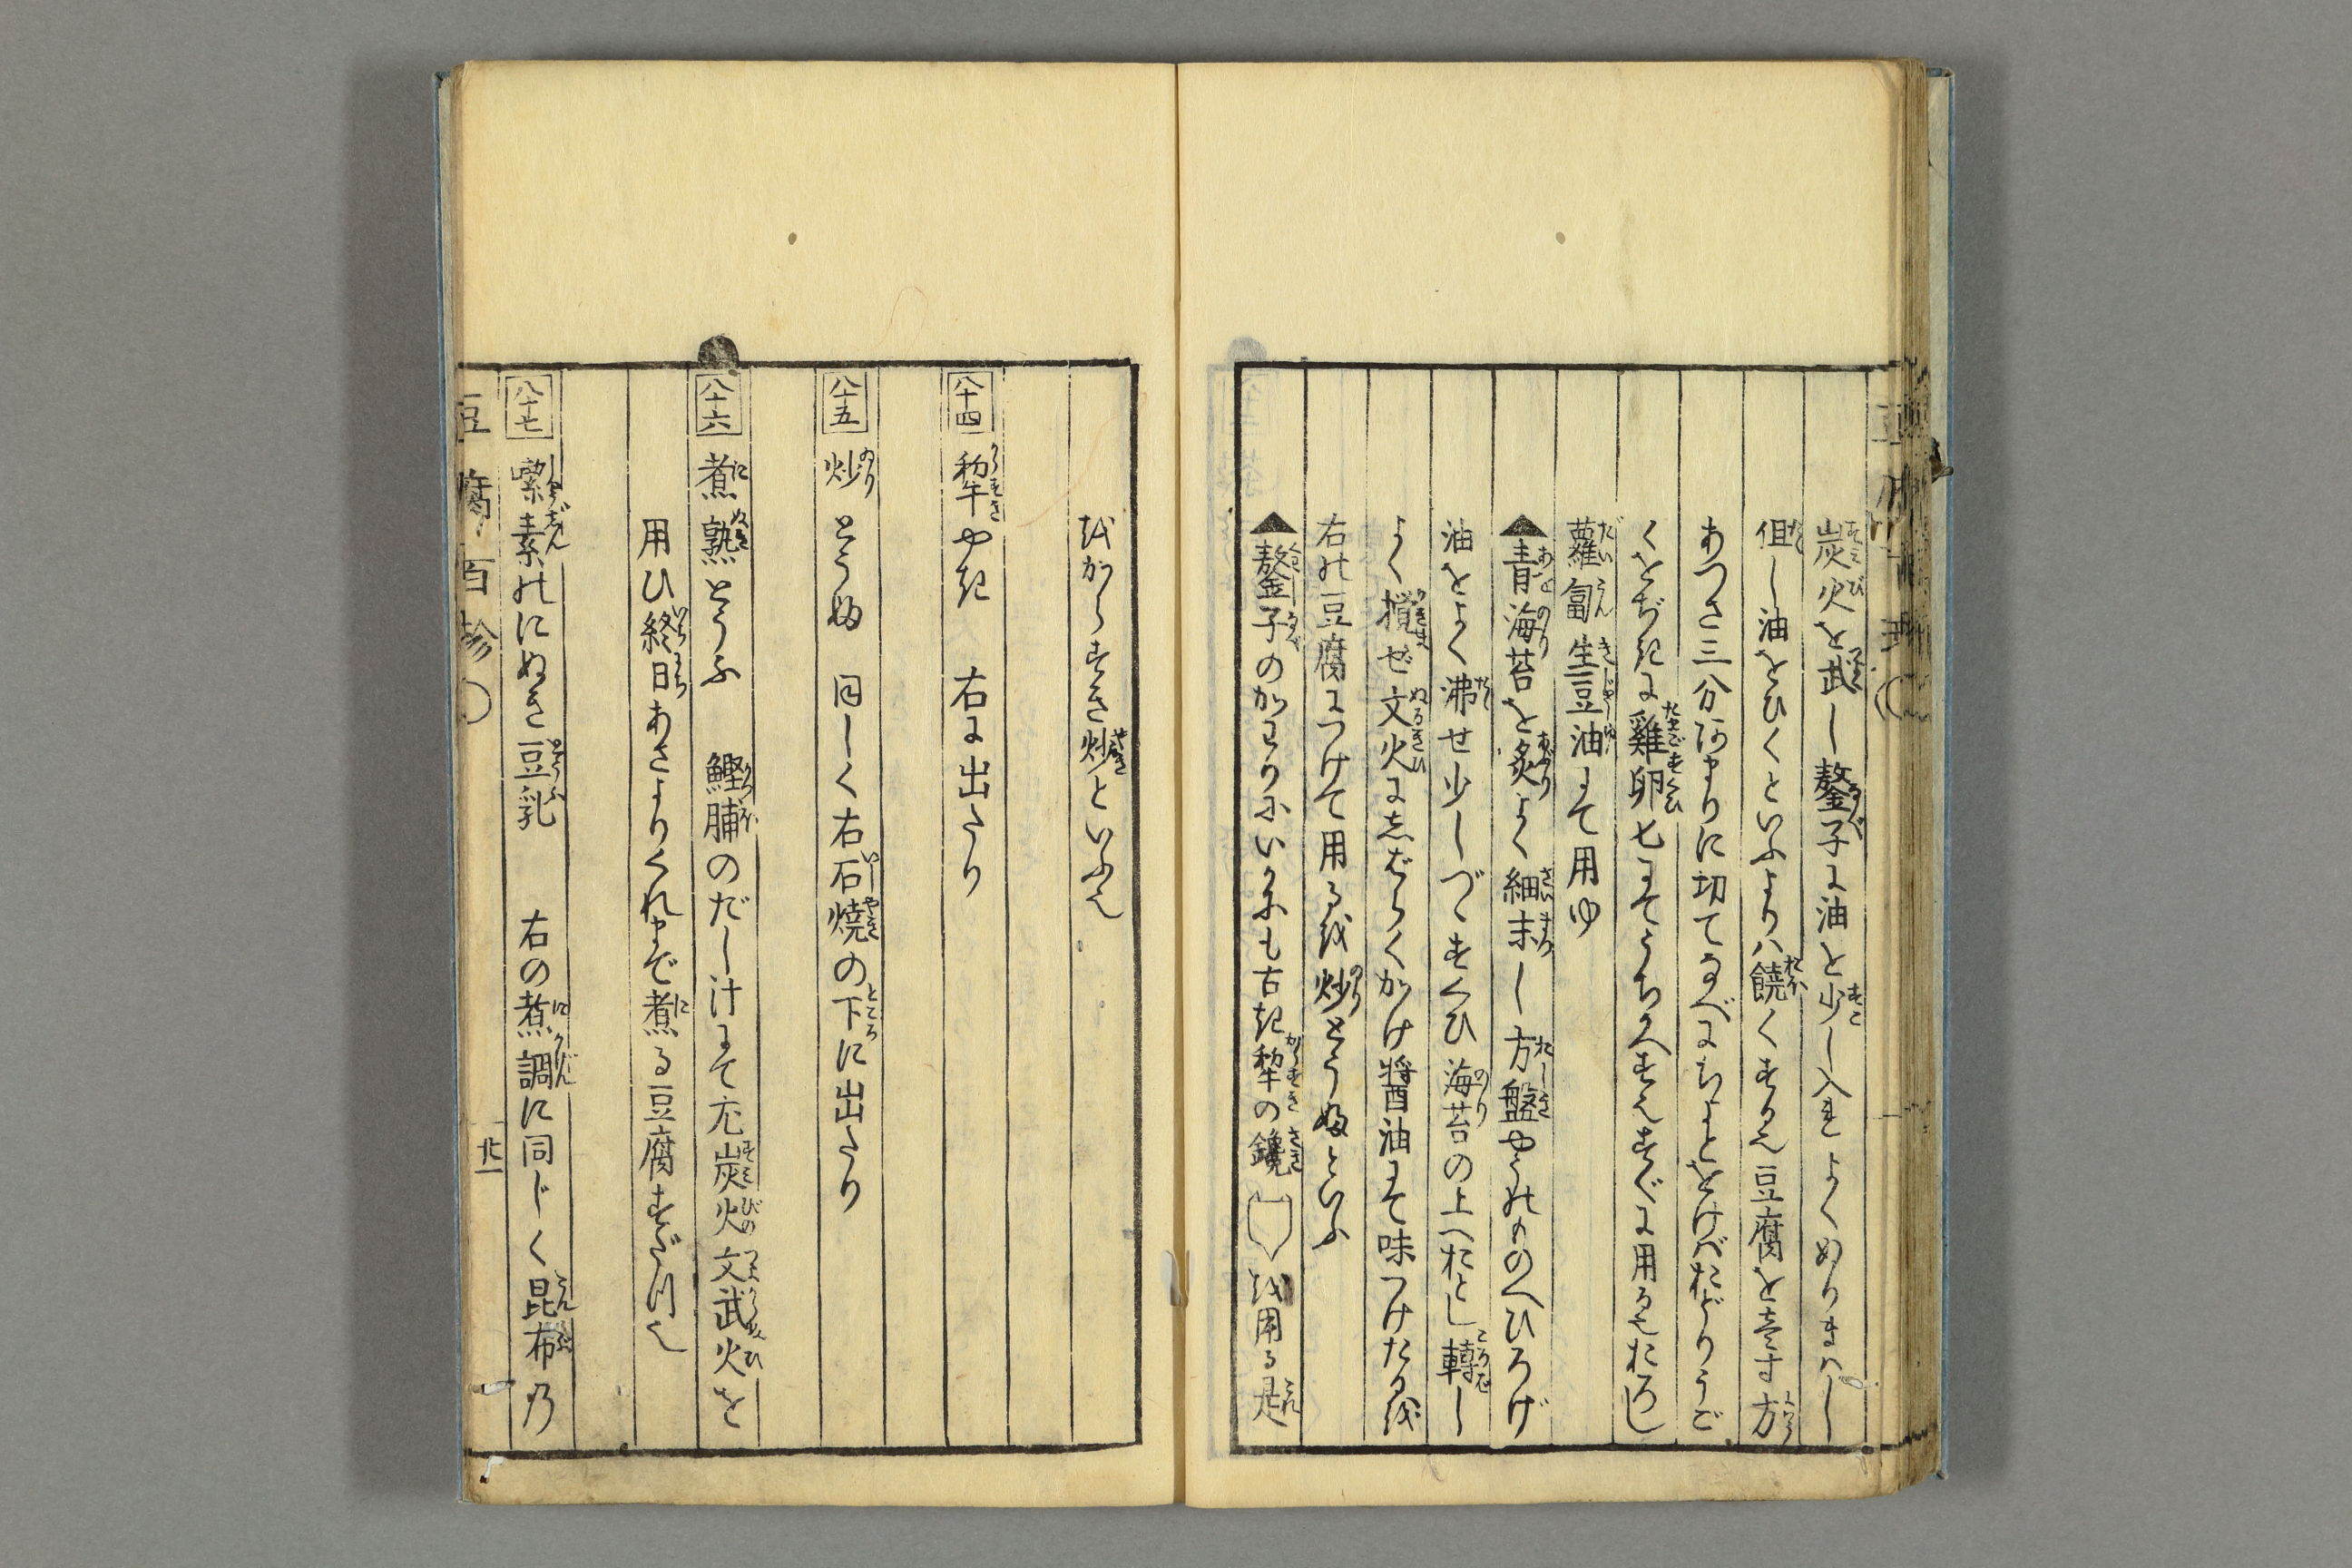 炭火を武し鏊子に油を少し入れよくぬりまハし
但し油をひくといふよりハ饒くする也豆腐を壱寸方
あつさ三分あまりに切てなべにちよとをけばおどりうご
くをぢきに雞卵匕にてうちかへすも也すぐに用る也おろし
蘿蔔生豆油にて用ゆ
▲青海苔を炙よく細末し方盤やうのものへひろげ
油をよく沸せ少しづゝすくひ海苔の上へおとし轉し
よく攪ぜ文火にしばらくかけ醤油にて味つけたるを
右の豆腐につけて用るを炒とうふといふ
▲鏊子のかわりにいかにも古き犂の鑱を用る是
をからすき炒といふ也
八十四 犂やき 右に出たり
八十五 炒とうふ 同しく右石焼の下に出たり
八十六 煮熟とうふ 鰹脯のだし汁にて炭火文武火を
用ひ終日あさよりくれまで煮る豆腐すだつ也
八十七 素のにぬき豆乳 右の煮調に同じく昆布乃
豆腐百珍 〇 廿一